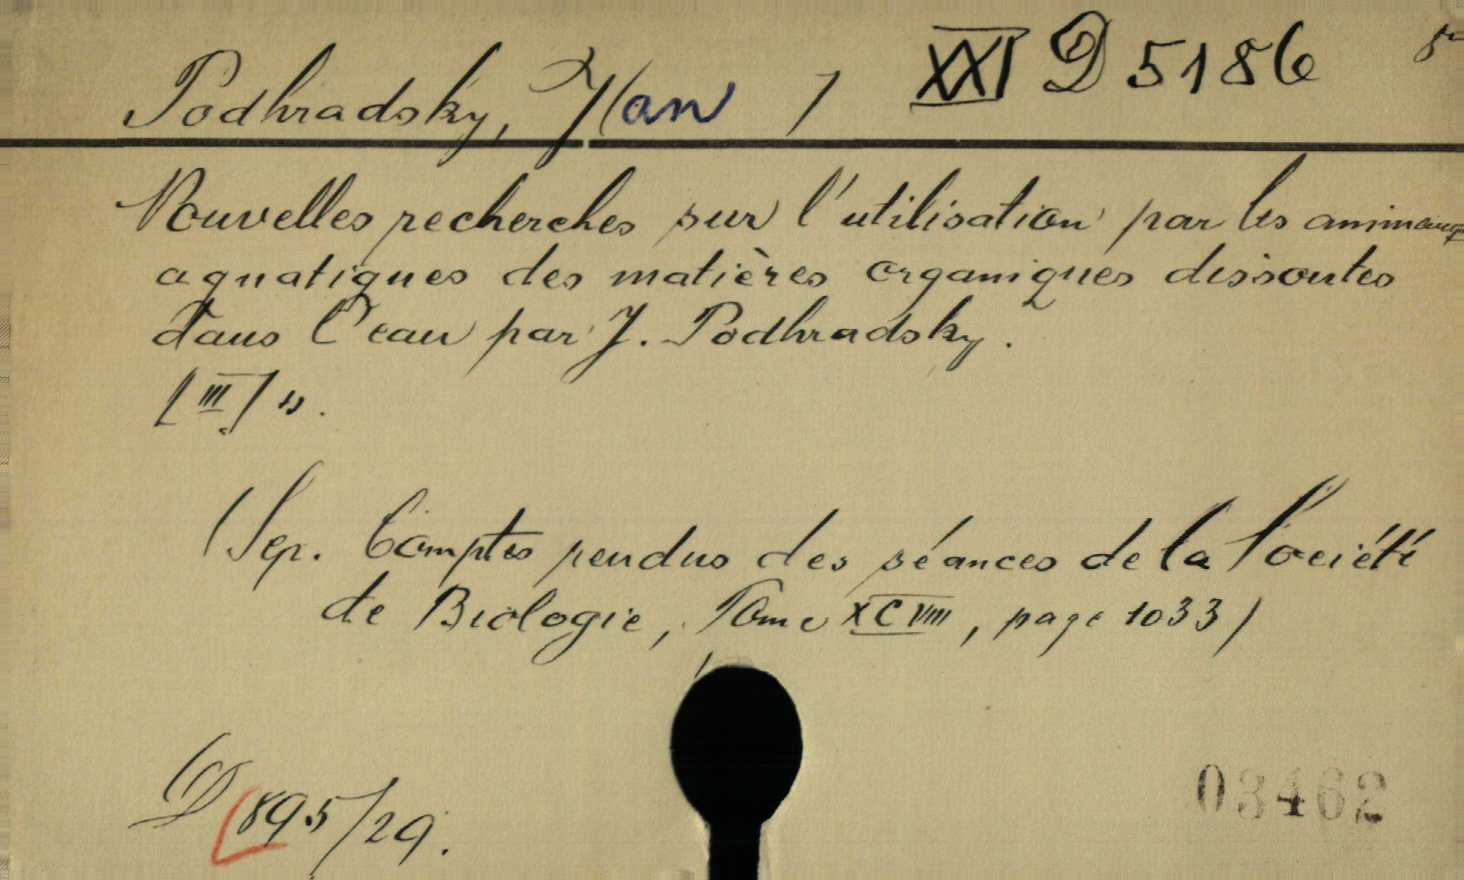 Podhradsky, J(an ) XXI D 5186
Nouvelles recherches sur l'utilisation par les animaux
aquatiques des matières organiques dissoutes
dans l'eau par J. Podhradsky.
[III] s.
(Sep. Comptes rendus des séances de la Société
de Biologie, Tome XCVIII, page 1033)
D 895/29.
03462